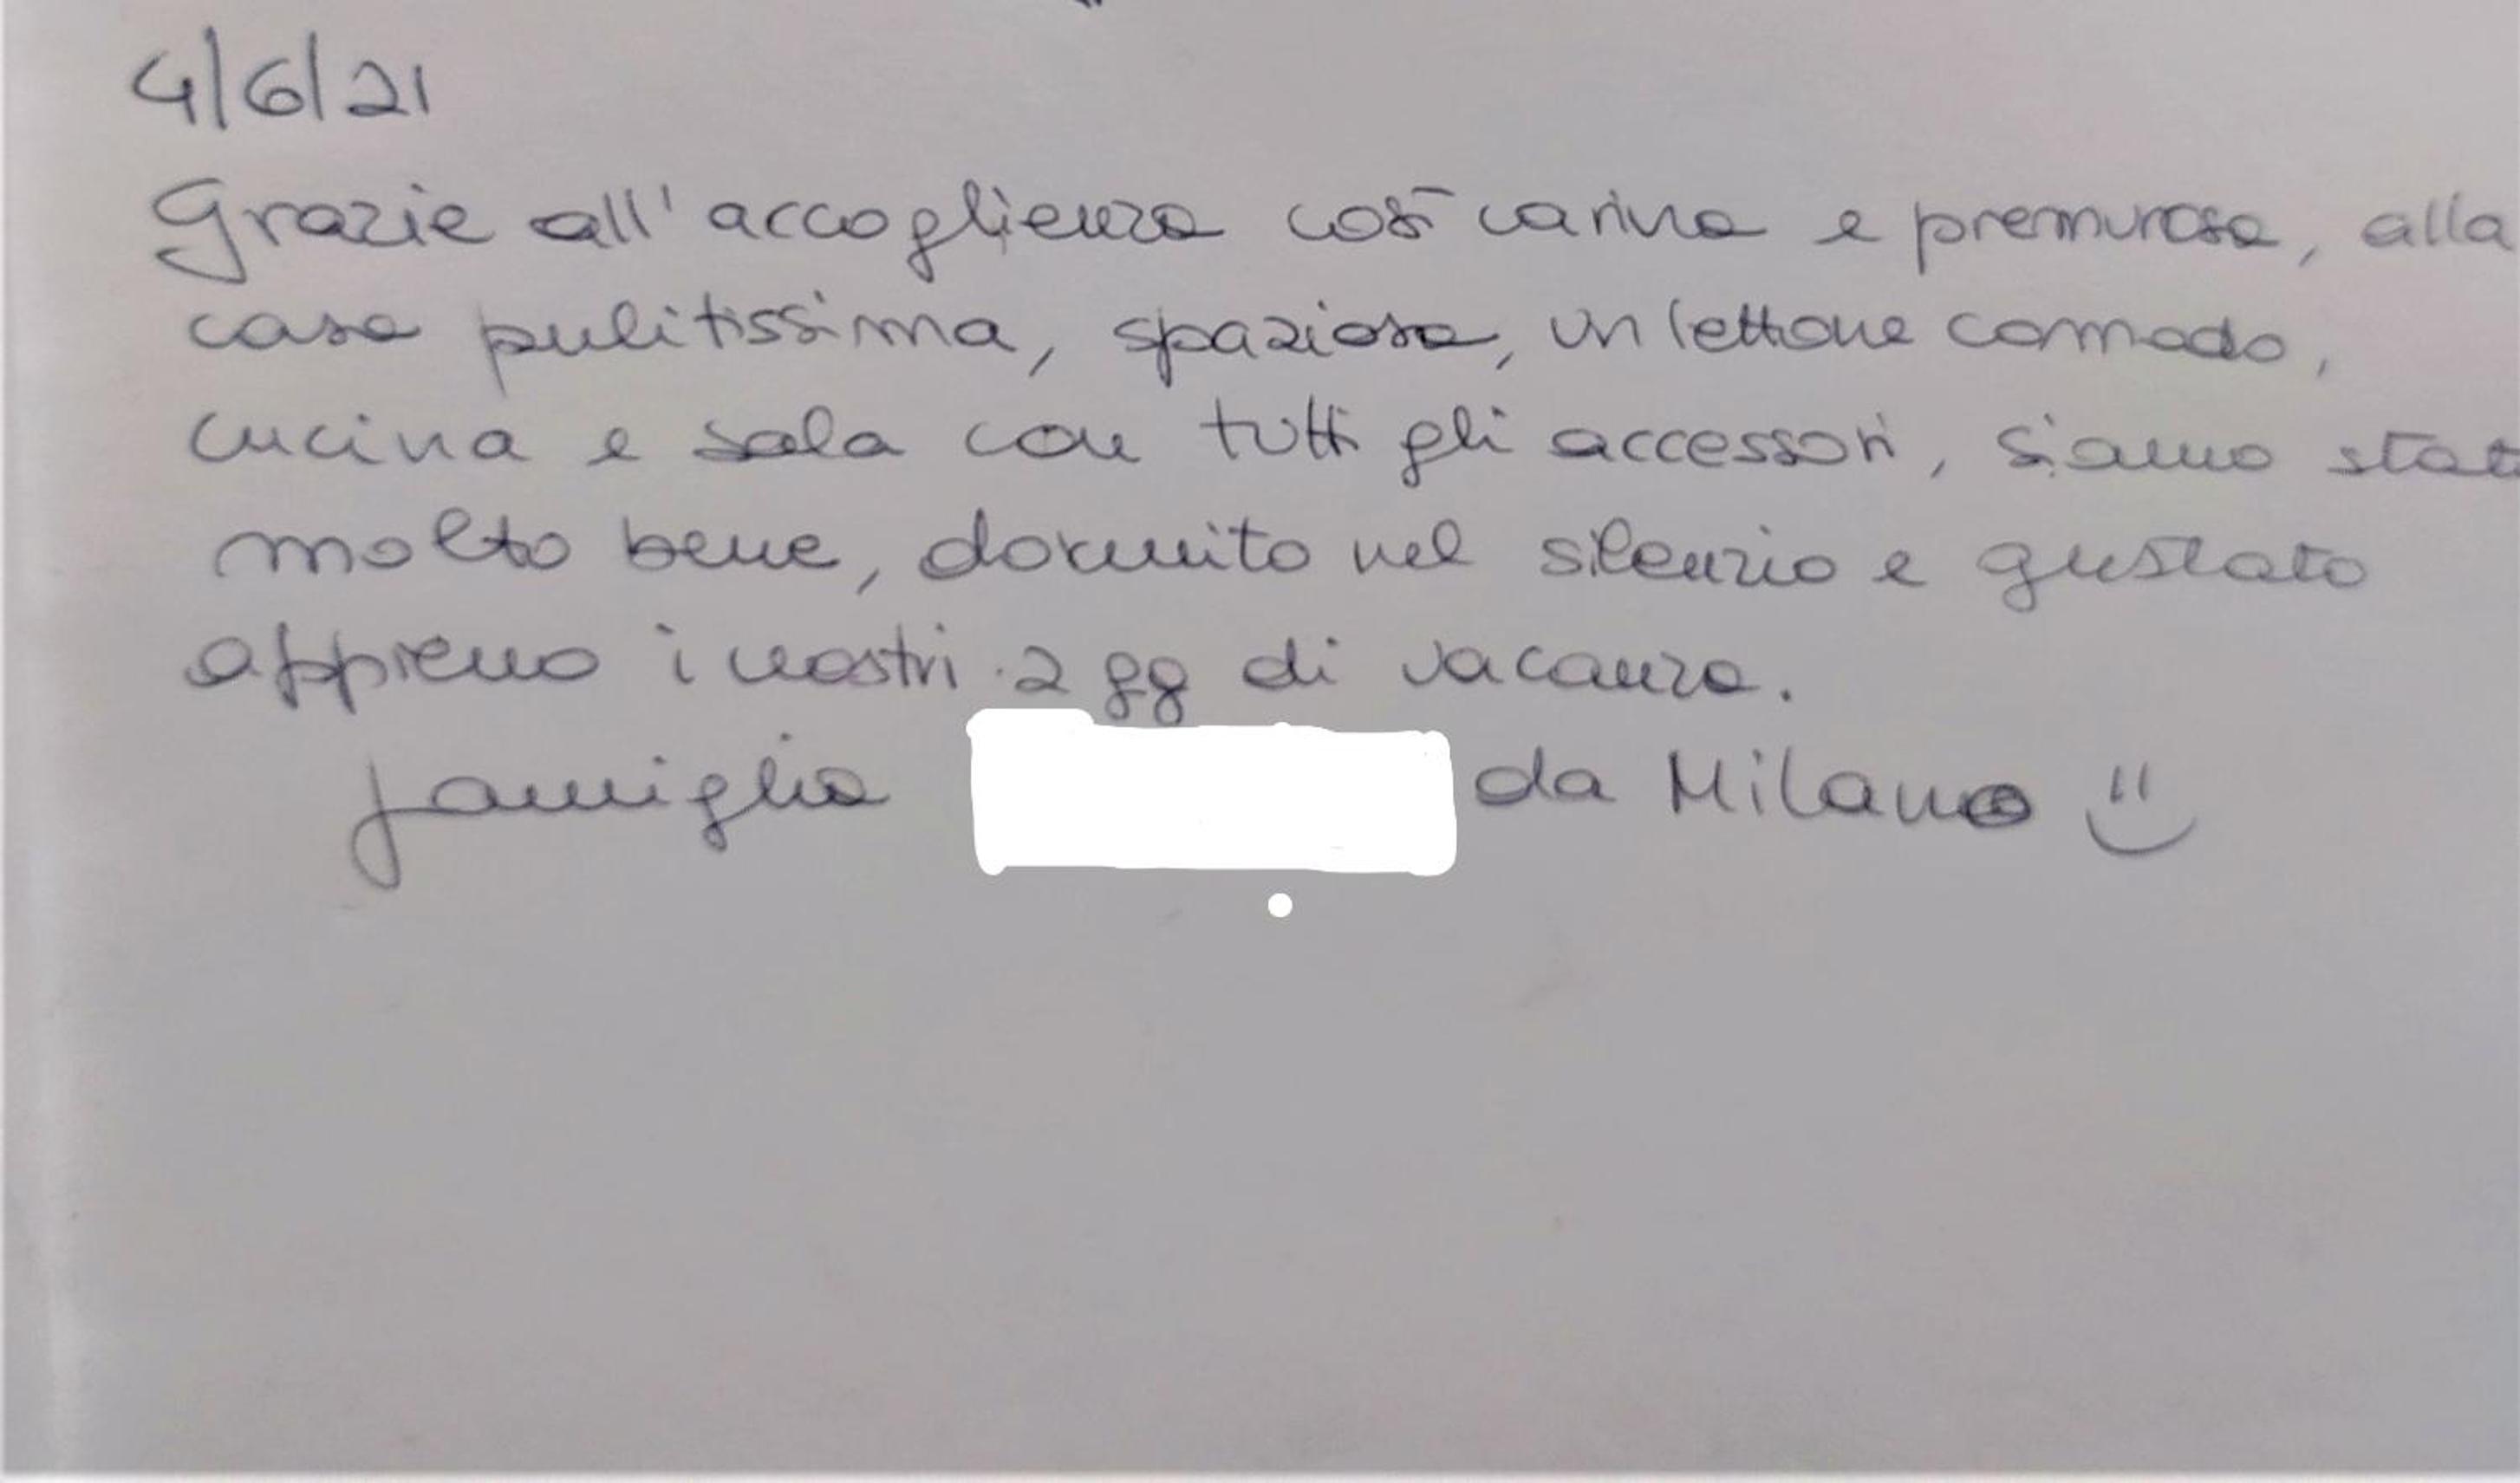 4/6/21
Grazie all'accoglienza così carina e premurosa, alla
casa pulitissima, spaziosa, un lettone comodo,
cucina e sala con tutti gli accessori, siamo stat
molto bene, dormito nel silenzio e gustato
appieno i nostri 2 gg di vacanza.
famiglia da Milano